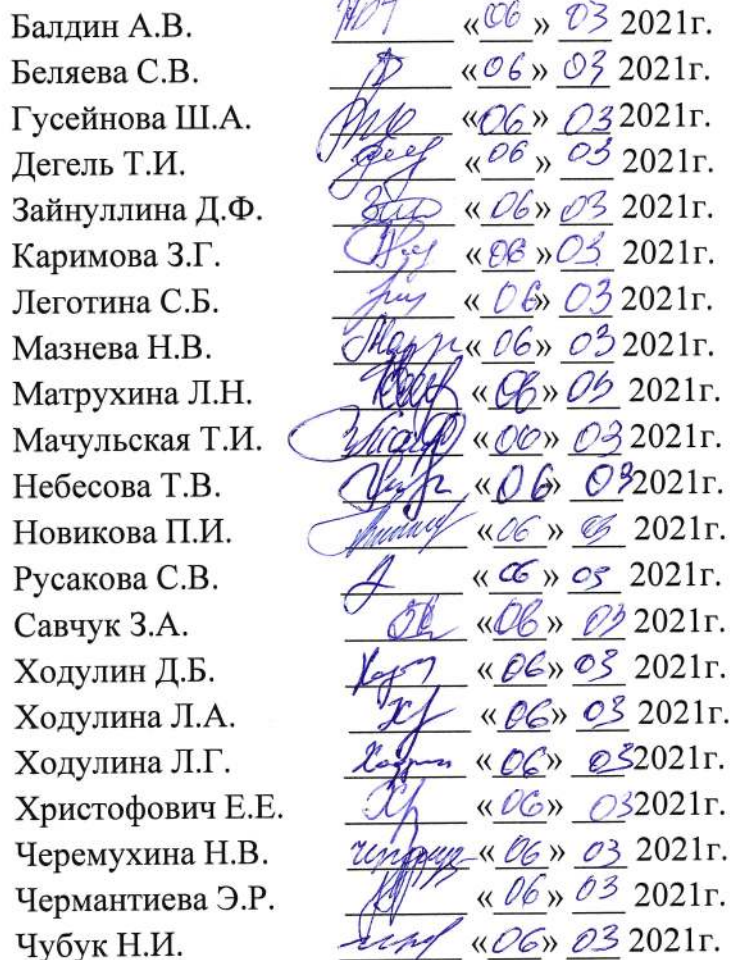 Балдин А.В. «06» 03 2021г.
Беляева С.В. «06» 03 2021г.
Гусейнова Ш.А. «06» 03 2021г.
Дегель Т.И. «06» 03 2021г.
Зайнуллина Д.Ф. «06» 03 2021г.
Каримова З.Г. «06» 03 2021г.
Леготина С.Б. «06» 03 2021г.
Мазнева Н.В. «06» 03 2021г.
Матрухина Л.Н. «06» 03 2021г.
Мачульская Т.И. «06» 03 2021г.
Небесова Т.В. «06» 03 2021г.
Новикова П.И. «06» 03 2021г.
Русакова С.В. «06» 03 2021г.
Савчук З.А. «06» 03 2021г.
Ходулин Д.Б. «06» 03 2021г.
Ходулина Л.А. «06» 03 2021г.
Ходулина Л.Г. «06» 03 2021г.
Христофович Е.Е. «06» 03 2021г.
Черемухина Н.В. «06» 03 2021г.
Чермантиева Э.Р. «06» 03 2021г.
Чубук Н.И. «06» 03 2021г.